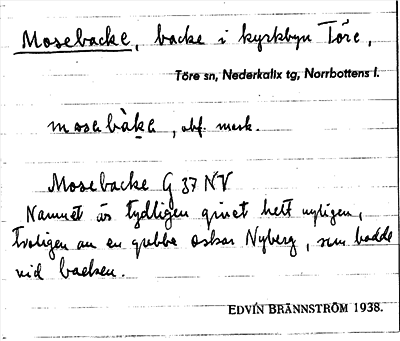 Mosebacke, backe i kyrkbyn Töre,
Töre sn, Nederkalix tg, Norrbottens l.
mosabàka, obf. mask.
Mosebacke G 37 NV
Namnet är tydligen givet helt nyligen,
troligen av en gubbe Oskar Nyberg, som bodde
vid backen.
EDVIN BRÄNNSTRÖM 1938.